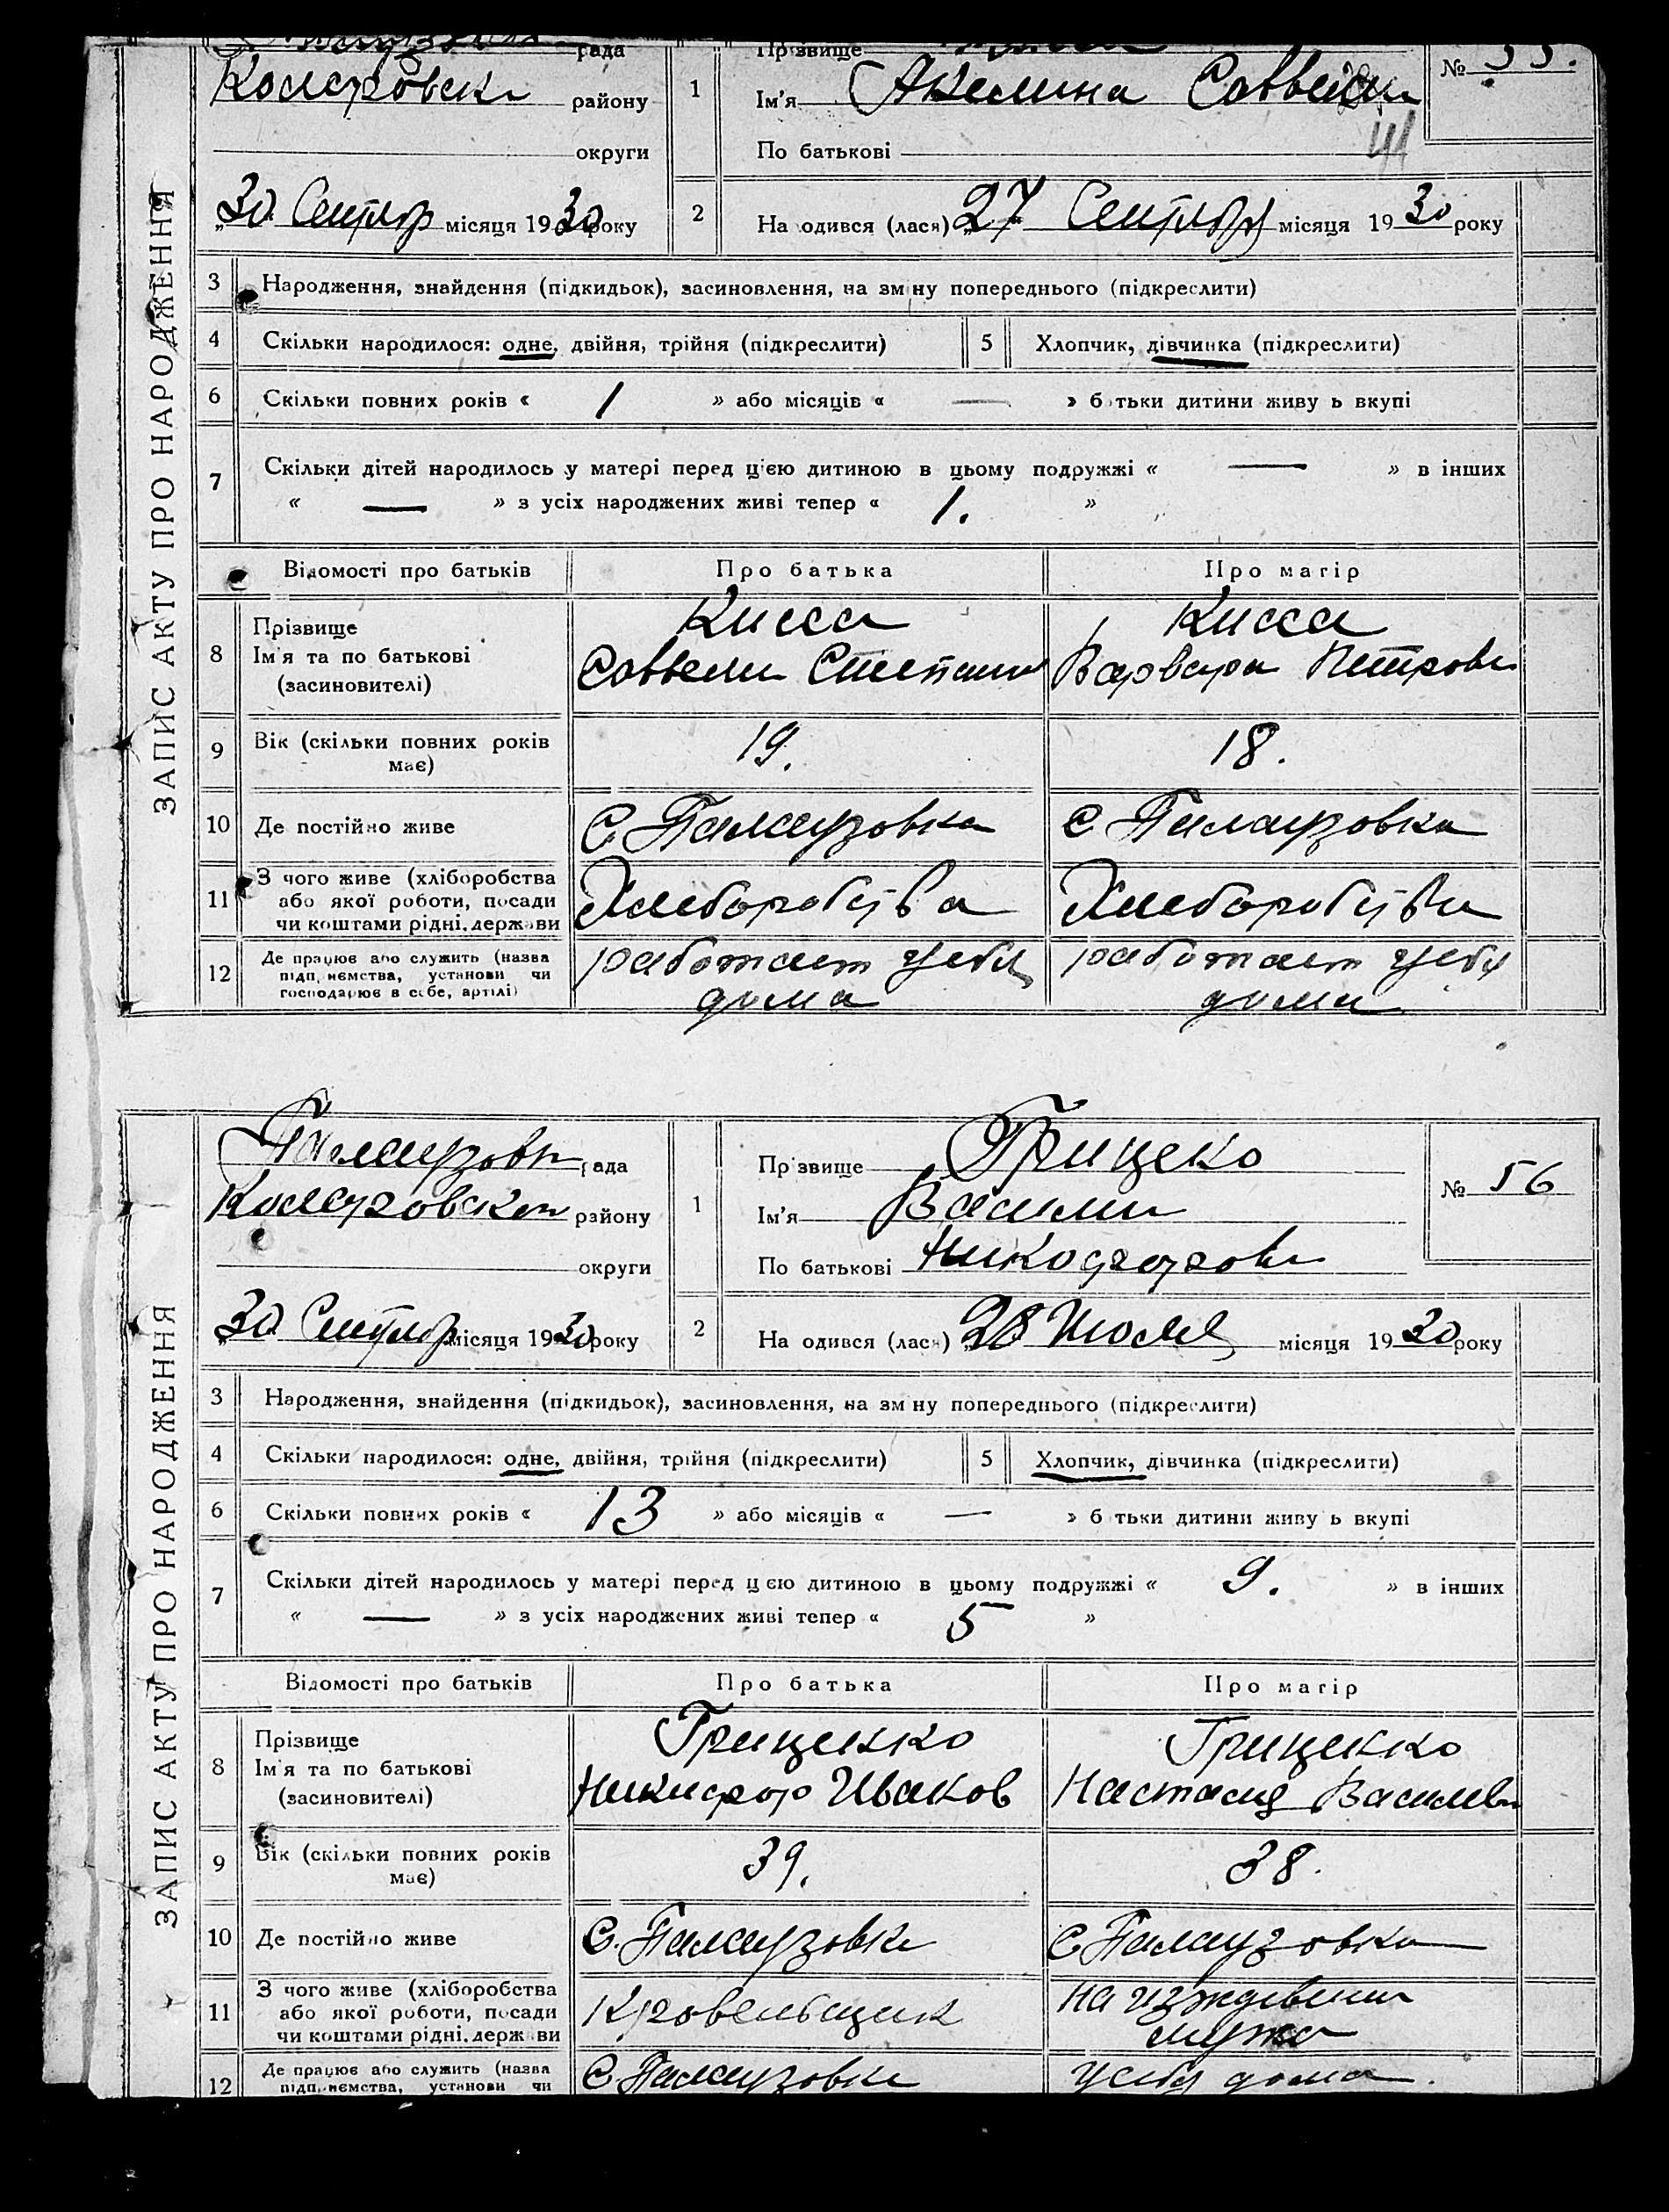 рада
Прізвище
№ 55.
районy
1
Ім'я Акелина Саввеи
округи
По батькові
„30 Сентяbr місяця 1930 року
2
На одився (лася) „27 Сентябр місяця 1930 року
ЗАПИС АКТУ ПРО НАРОДЖЕННЯ
3 Народження, знайдення (підкидьок), засиновлення, на зміну попереднього (підкреслити)
4 Скільки народилося: одне, двійня, трійня (підкреслити)
5 Хлопчик, дівчинка (підкреслити)
6 Скільки повних років « 1 » або місяців « — » б тьки дитини живу ь вкупі
7 Скільки дітей народилось у матері перед цією дитиною в цьому подружжі « — » в інших
« — » з усіх народжених живі тепер « 1. »
Відомості про батьків Про батька Про матір
8 Прізвище Кисса Кисса
Ім'я та по батькові Саввели Степанов Варвара Петровн
(засиновителі)
9 Вік (скільки повних років 19. 18.
має)
10 Де постійно живе С Палаузовка С Палаузовка
11 З чого живе (хліборобства Хлеборобства Хлеборобства
або якої роботи, посади
чи коштами рідні, держави
12 Де працює або служить (назва работает у себя работает у себя
підп. иємства, установи чи
господарює в себе, артілі) дома дома
Палаузовк рада
1
Пр звище Грицеко
№ 56
районy
Ім'я Васили
округи
По батькові Никофоров
„30 Сентябр місяця 1930 року
2
На одився (лася) „28 Июля місяця 1930 року
ЗАПИС АКТУ ПРО НАРОДЖЕННЯ
3 Народження, знайдення (підкидьок), засиновлення, на зм ну попереднього (підкреслити)
4 Скільки народилося: одне, двійня, трійня (підкреслити)
5 Хлопчик, дівчинка (підкреслити)
6 Скільки повних років « 13 » або місяців « — » б тьки дитини живу ь вкупі
7 Скільки дітей народилось у матері перед цією дитиною в цьому подружжі « 9. » в інших
« — » з усіх народжених живі тепер « 5 »
Відомості про батьків Про батька Про матір
8 Прізвище Гриценко Гриценко
Ім'я та по батькові Никифор Иванов Настасия Василевн
(засиновителі)
9 Вік (скільки повних років 39. 38.
має)
10 Де постійно живе С. Палаузовка С Палаузовка
11 З чого живе (хліборобства Кровельщик На иждивении
або якої роботи, посади мужа
чи коштами рідні, держ ви
12 Де працює або служить (назва С Палаузовке У себя дома.
підп. иємства, установи чи